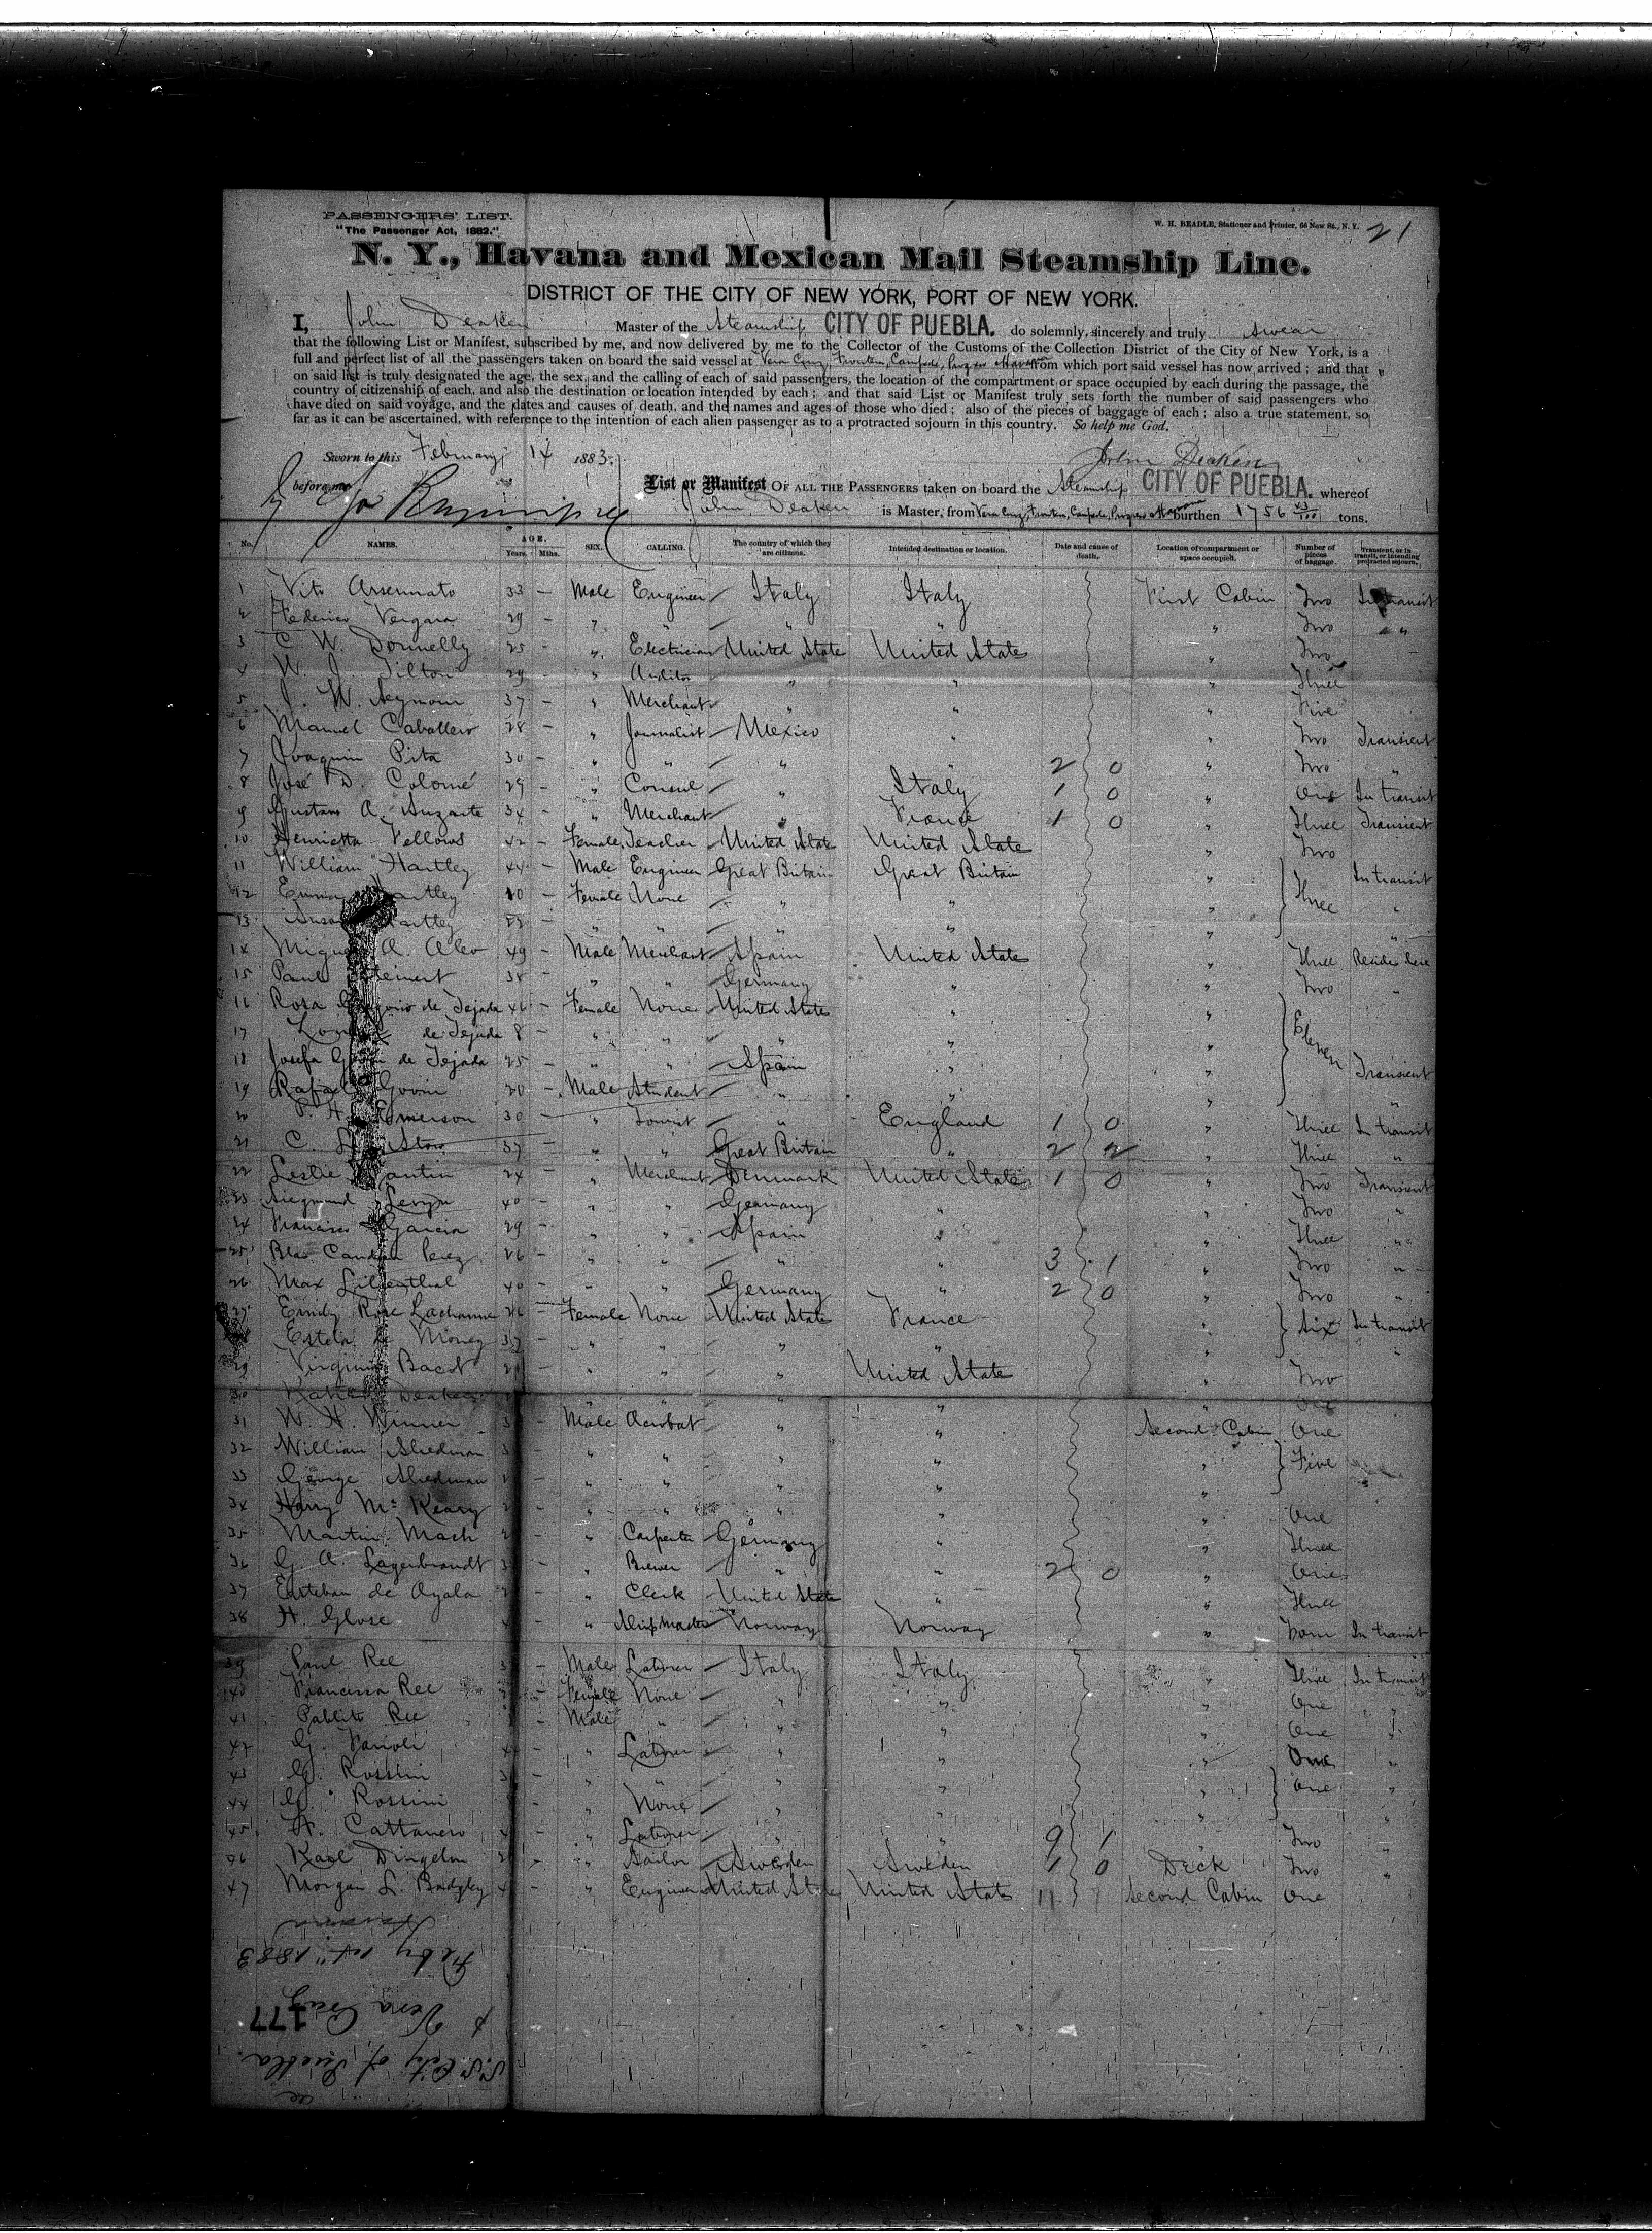 PASSENGERS' LIST.
"The Passenger Act, 1882."
W. H. BEADLE, Stationer and Printer, 64 New St., N. Y.
21
N. Y., Havana and Mexican Mail Steamship Line.
DISTRICT OF THE CITY OF NEW YORK, PORT OF NEW YORK.
I, John Deaken Master of the Steamship CITY OF PUEBLA. do solemnly, sincerely and truly swear
that the following List or Manifest, subscribed by me, and now delivered by me to the Collector of the Customs of the Collection District of the City of New York, is a
full and perfect list of all the passengers taken on board the said vessel at Vera Cruz, Frontera, Campeche, Progreso Havana from which port said vessel has now arrived; and that
on said list is truly designated the age, the sex, and the calling of each of said passengers, the location of the compartment or space occupied by each during the passage, the
country of citizenship of each, and also the destination or location intended by each; and that said List or Manifest truly sets forth the number of said passengers who
have died on said voyage, and the dates and causes of death, and the names and ages of those who died; also of the pieces of baggage of each; also a true statement, so
far as it can be ascertained, with reference to the intention of each alien passenger as to a protracted sojourn in this country. So help me God.
Sworn to this February 14 1883.
John Deaken
before me
List or Manifest OF ALL THE PASSENGERS taken on board the Steamship CITY OF PUEBLA. whereof
John Deaken is Master, from Vera Cruz, Frontera, Campeche, Progreso Havana burthen 1756 tons.
No. NAMES. AGE. Years. Mths. SEX. CALLING. The country of which they are citizens. Intended destination or location. Date and cause of death. Location of compartment or space occupied. Number of pieces of baggage. Transient, or in transit, or intending protracted sojourn.
1 Vito 33 — Male Engineer Italy Italy First Cabin Two In transit
2 Federico Vergara 29 — " " " " " Two " "
3 C. W. Donnelly 25 — " Electrician United State United State " Two
4 W. J. Tilton 29 — " Auditor " " " Three
5 J. W. Seymour 37 — " Merchant " " " Five
6 Manuel Caballero 28 — " Journalist Mexico " " Two Transient
7 Joaquin Pita 30 — " " " " 2 0 " Two "
8 José D. Colomé 29 — " Consul " Italy 1 0 " One In transit
9 Gustavo A. 34 — " Merchant " France 1 0 " Three Transient
10 Henrietta Fellows 42 — Female Teacher United State United State " Two
11 William Hartley 44 — Male Engineer Great Britain Great Britain " In transit
12 Emma Hartley — Female None " " " Three "
13 Susan Hartley 22 — " " " " " "
14 Miguel A. 49 — Male Merchant Spain United State " Three Resides here
15 Paul Steinert 38 — " " Germany " " Two "
16 Rosa de Tejada 46 — Female None United State " "
17 de Tejada 8 — " " " " " Eleven
18 Josefa de Tejada 25 — " " Spain " " Transient
19 Rafael Govin 20 — Male Student " " " "
20 P. H. Emerson 30 — " Tourist " England 1 0 " Three In transit
21 C. 37 — " " Great Britain " 2 2 " Three "
22 Leslie 24 — " Merchant Denmark United State 1 0 " Two Transient
23 Siegmund 40 — " " Germany " " Two "
24 Francisco Garcia 29 — " " Spain " " Three "
25 Blas Perez 26 — " " " " 3 1 " Two "
26 Max Lilienthal 40 — " " Germany " 2 0 " Two "
27 Emily Rose Lachaume 26 — Female None United State France " Six In transit
Estela de — " " " " " "
29 Virginia Bacot — " " " United State " Two
30 Deaken " " "
31 W. H. Winner — Male Acrobat " " Second Cabin One
32 William — " " " " " Five
33 George — " " " " "
34 Harry Mc Keary " " " " " One
35 Martin Mach " Carpenter Germany " " Three
36 G. A. Lagerbrandt — " Brewer " " 2 0 " One
37 Esteban de Ayala " Clerk United State " " Three
38 H. " Ship master Norway Norway " Four In transit
39 Paul Ree — Male Laborer Italy Italy " Three In transit
40 Francisca Ree — Female None " " " One "
41 Pablito Ree — Male " " " " One
42 G. — " Laborer " " " One "
43 G. Rossini " " " " " One "
44 G. Rossini — " None " " "
45 A. Cattaneo — " Laborer " " 9 1 Two "
46 Karl — " Sailor Sweden Sweden 1 0 Deck Two "
47 Morgan L. Badgley " Engineer United State United State 11 Second Cabin One
Havana
Feby 14" 1883
& Vera Cruz
177
S.S. City of Puebla.